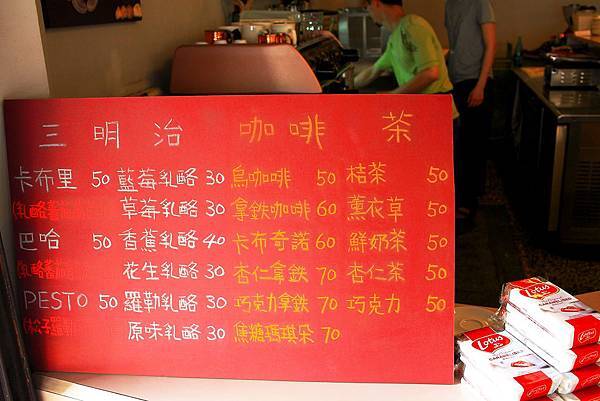 三明治 咖啡 茶
卡布里 50 藍莓乳酪 30 烏咖啡 50 桔茶 50
(乳酪蕃茄 草莓乳酪 30 拿鉄咖啡 60 薰衣草 50
巴哈 50 香蕉乳酪 40 卡布奇諾 60 鮮奶茶 50
花生乳酪 30 杏仁拿鉄 70 杏仁茶 50
PESTO 50 羅勒乳酪 30 巧克力拿鉄 70 巧克力 50
(松子 原味乳酪 30 焦糖瑪琪朵 70
Lotus
Lotus